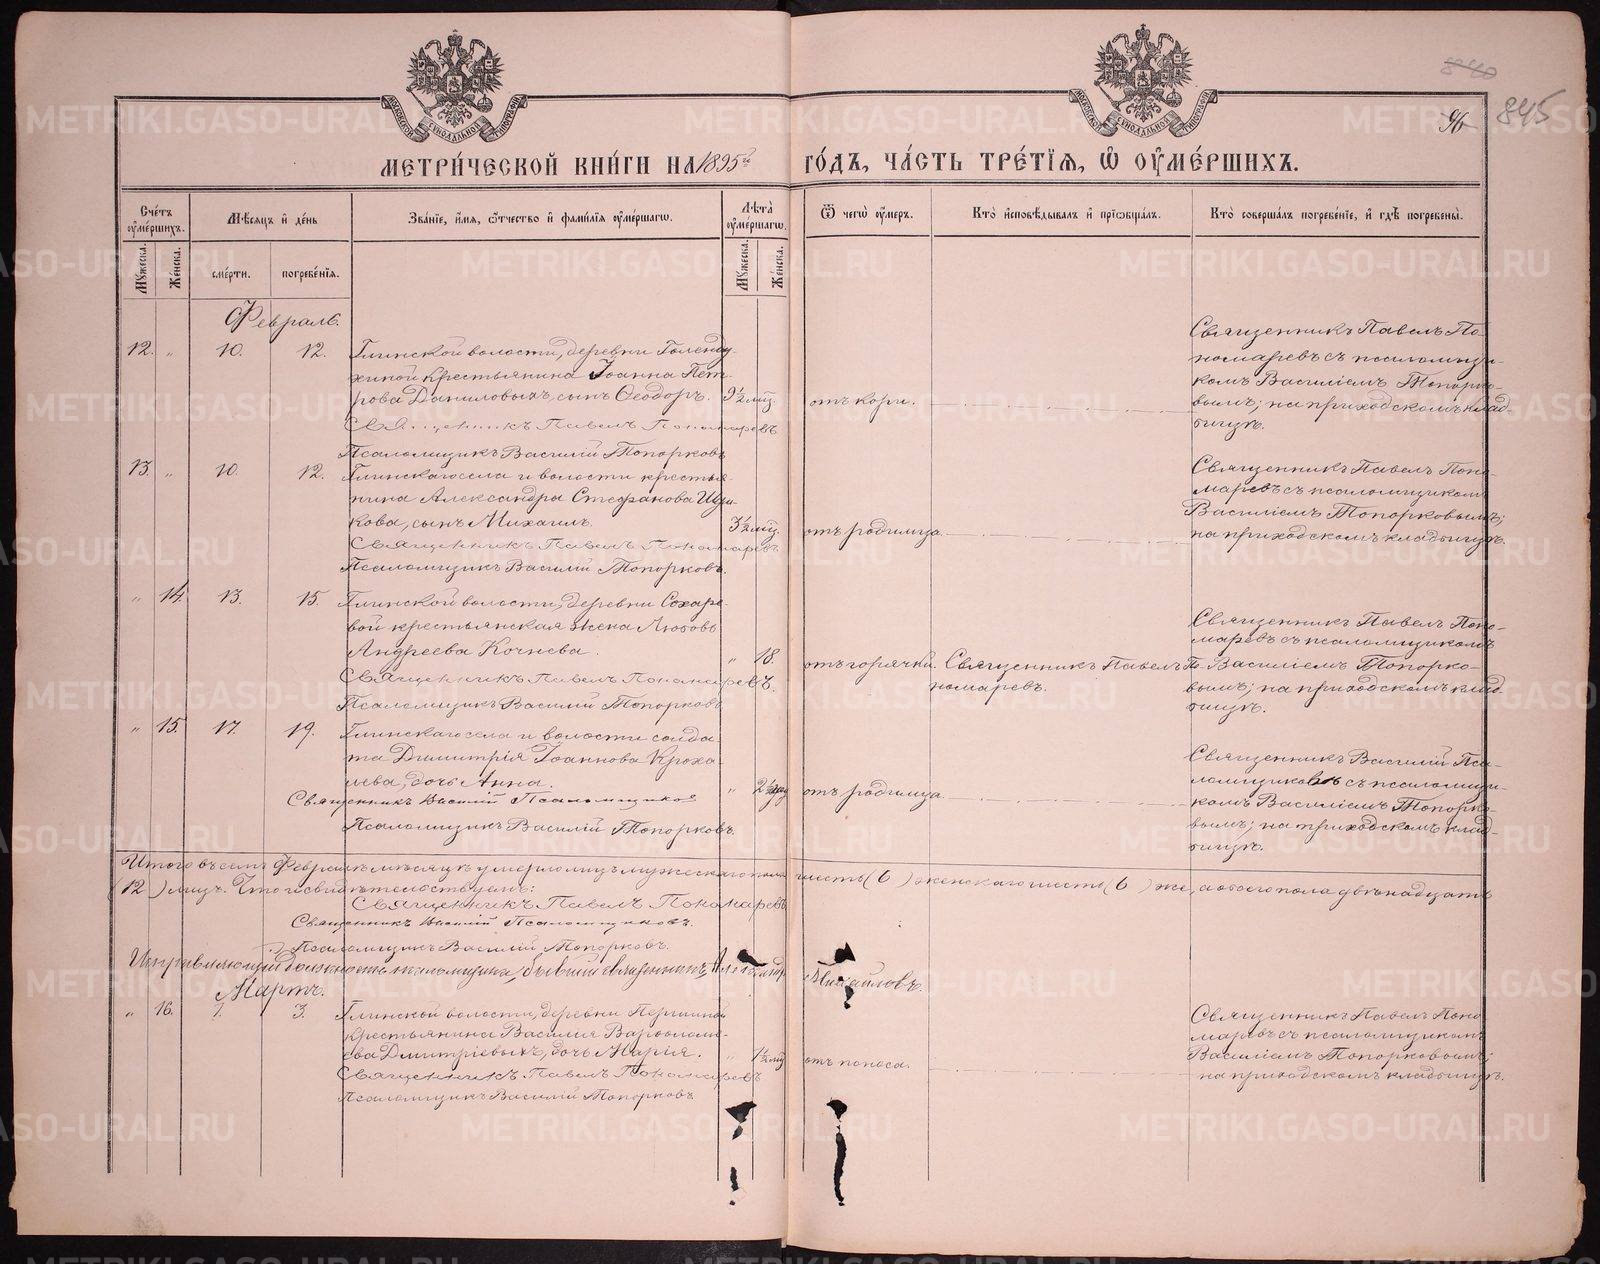 840
845
96
МЕТРИ́ЧЕСКОЙ КНИ́ГИ НА 1895й ГО́ДЪ, ЧА́СТЬ ТРЕ́ТІѦ, Ѽ ОУ҆МЕ́РШИХЪ.
Сче́тъ оу҆ме́ршихъ.
Мꙋ́жеска.
Же́нска.
Мѣ́сѧцъ и҆ де́нь
сме́рти.
погребе́нїѧ.
Зва́нїе, и҆́мѧ, ѻ҆́тчество и҆ фамилїѧ оу҆ме́ршагѡ.
Лѣ́та оу҆ме́ршагѡ.
Мꙋ́жеска.
Же́нска.
Ѿ чегѡ̀ оу҆́меръ.
Кто̀ и҆сповѣ́дывалъ и҆ прїѡбща́лъ.
Кто̀ соверша́лъ погребе́нїе, и҆ гдѣ̀ погребены̀.
Февраль.
12. „ 10. 12. Глинской волости, деревни Голенду-
хиной крестьянина Іоанна Пет-
рова Даниловыхъ, сынъ Ѳеодоръ. 9½ мц. отъ кори.
Священникъ Павелъ Пономаревъ
Псаломщикъ Василій Топорковъ
Священникъ Павелъ По-
номаревъ съ псаломщи-
комъ Василіемъ Топорко-
вымъ; на приходскомъ клад-
бищѣ.
13. „ 10. 12. Глинскаго села и волости крестья-
нина Александра Стефанова
кова, сынъ Михаилъ. 3½ мц. отъ родимца.
Священникъ Павелъ Пономаревъ
Псаломщикъ Василій Топорковъ.
Священникъ Павелъ Поно-
маревъ съ псаломщикомъ
Василіемъ Топорковымъ;
на приходскомъ кладбищѣ.
„ 14. 13. 15. Глинской волости, деревни Сохаре-
вой крестьянская жена Любовь
Андреева Кочнева. „ 18. отъ горячки. Священникъ Павелъ По-
номаревъ.
Священникъ Павелъ Пономаревъ.
Псаломщикъ Василій Топорковъ
Священникъ Павелъ Поно-
маревъ съ псаломщикомъ
Василіемъ Топорко-
вымъ; на приходскомъ клад-
бищѣ.
„ 15. 17. 19. Глинскаго села и волости солда-
та Димитрія Іоаннова Кроха-
лева, дочь Анна. „ 2½ отъ родимца.
Священникъ Василій Псаломщиковъ
Псаломщикъ Василій Топорковъ.
Священникъ Василій Пса-
ломщиковъ съ псаломщи-
комъ Василіемъ Топорко-
вымъ; на приходскомъ клад-
бищѣ.
Итого въ семъ Февралѣ мѣсяцѣ умерло лицъ мужескаго пола шесть (6) женскаго шесть (6) же, а обоего пола двѣнадцать
(12) лицъ. Что и свидѣтельствуемъ:
Священникъ Павелъ Пономаревъ
Священникъ Василій Псаломщиковъ.
Псаломщикъ Василій Топорковъ.
Исправляющій должность псаломщика, бывшій священникъ Михайловъ.
Мартъ.
„ 16. 1. 3. Глинской волости, деревни Першиной
крестьянина Василія Варѳоломе-
ева Дмитріевыхъ, дочь Марія. „ 1½ мц отъ поноса.
Священникъ Павелъ Пономаревъ
Псаломщикъ Василій Топорковъ
Священникъ Павелъ Поно-
маревъ съ псаломщикомъ
Василіемъ Топорковымъ;
на приходскомъ кладбищѣ.
METRIKI.GASO-URAL.RU